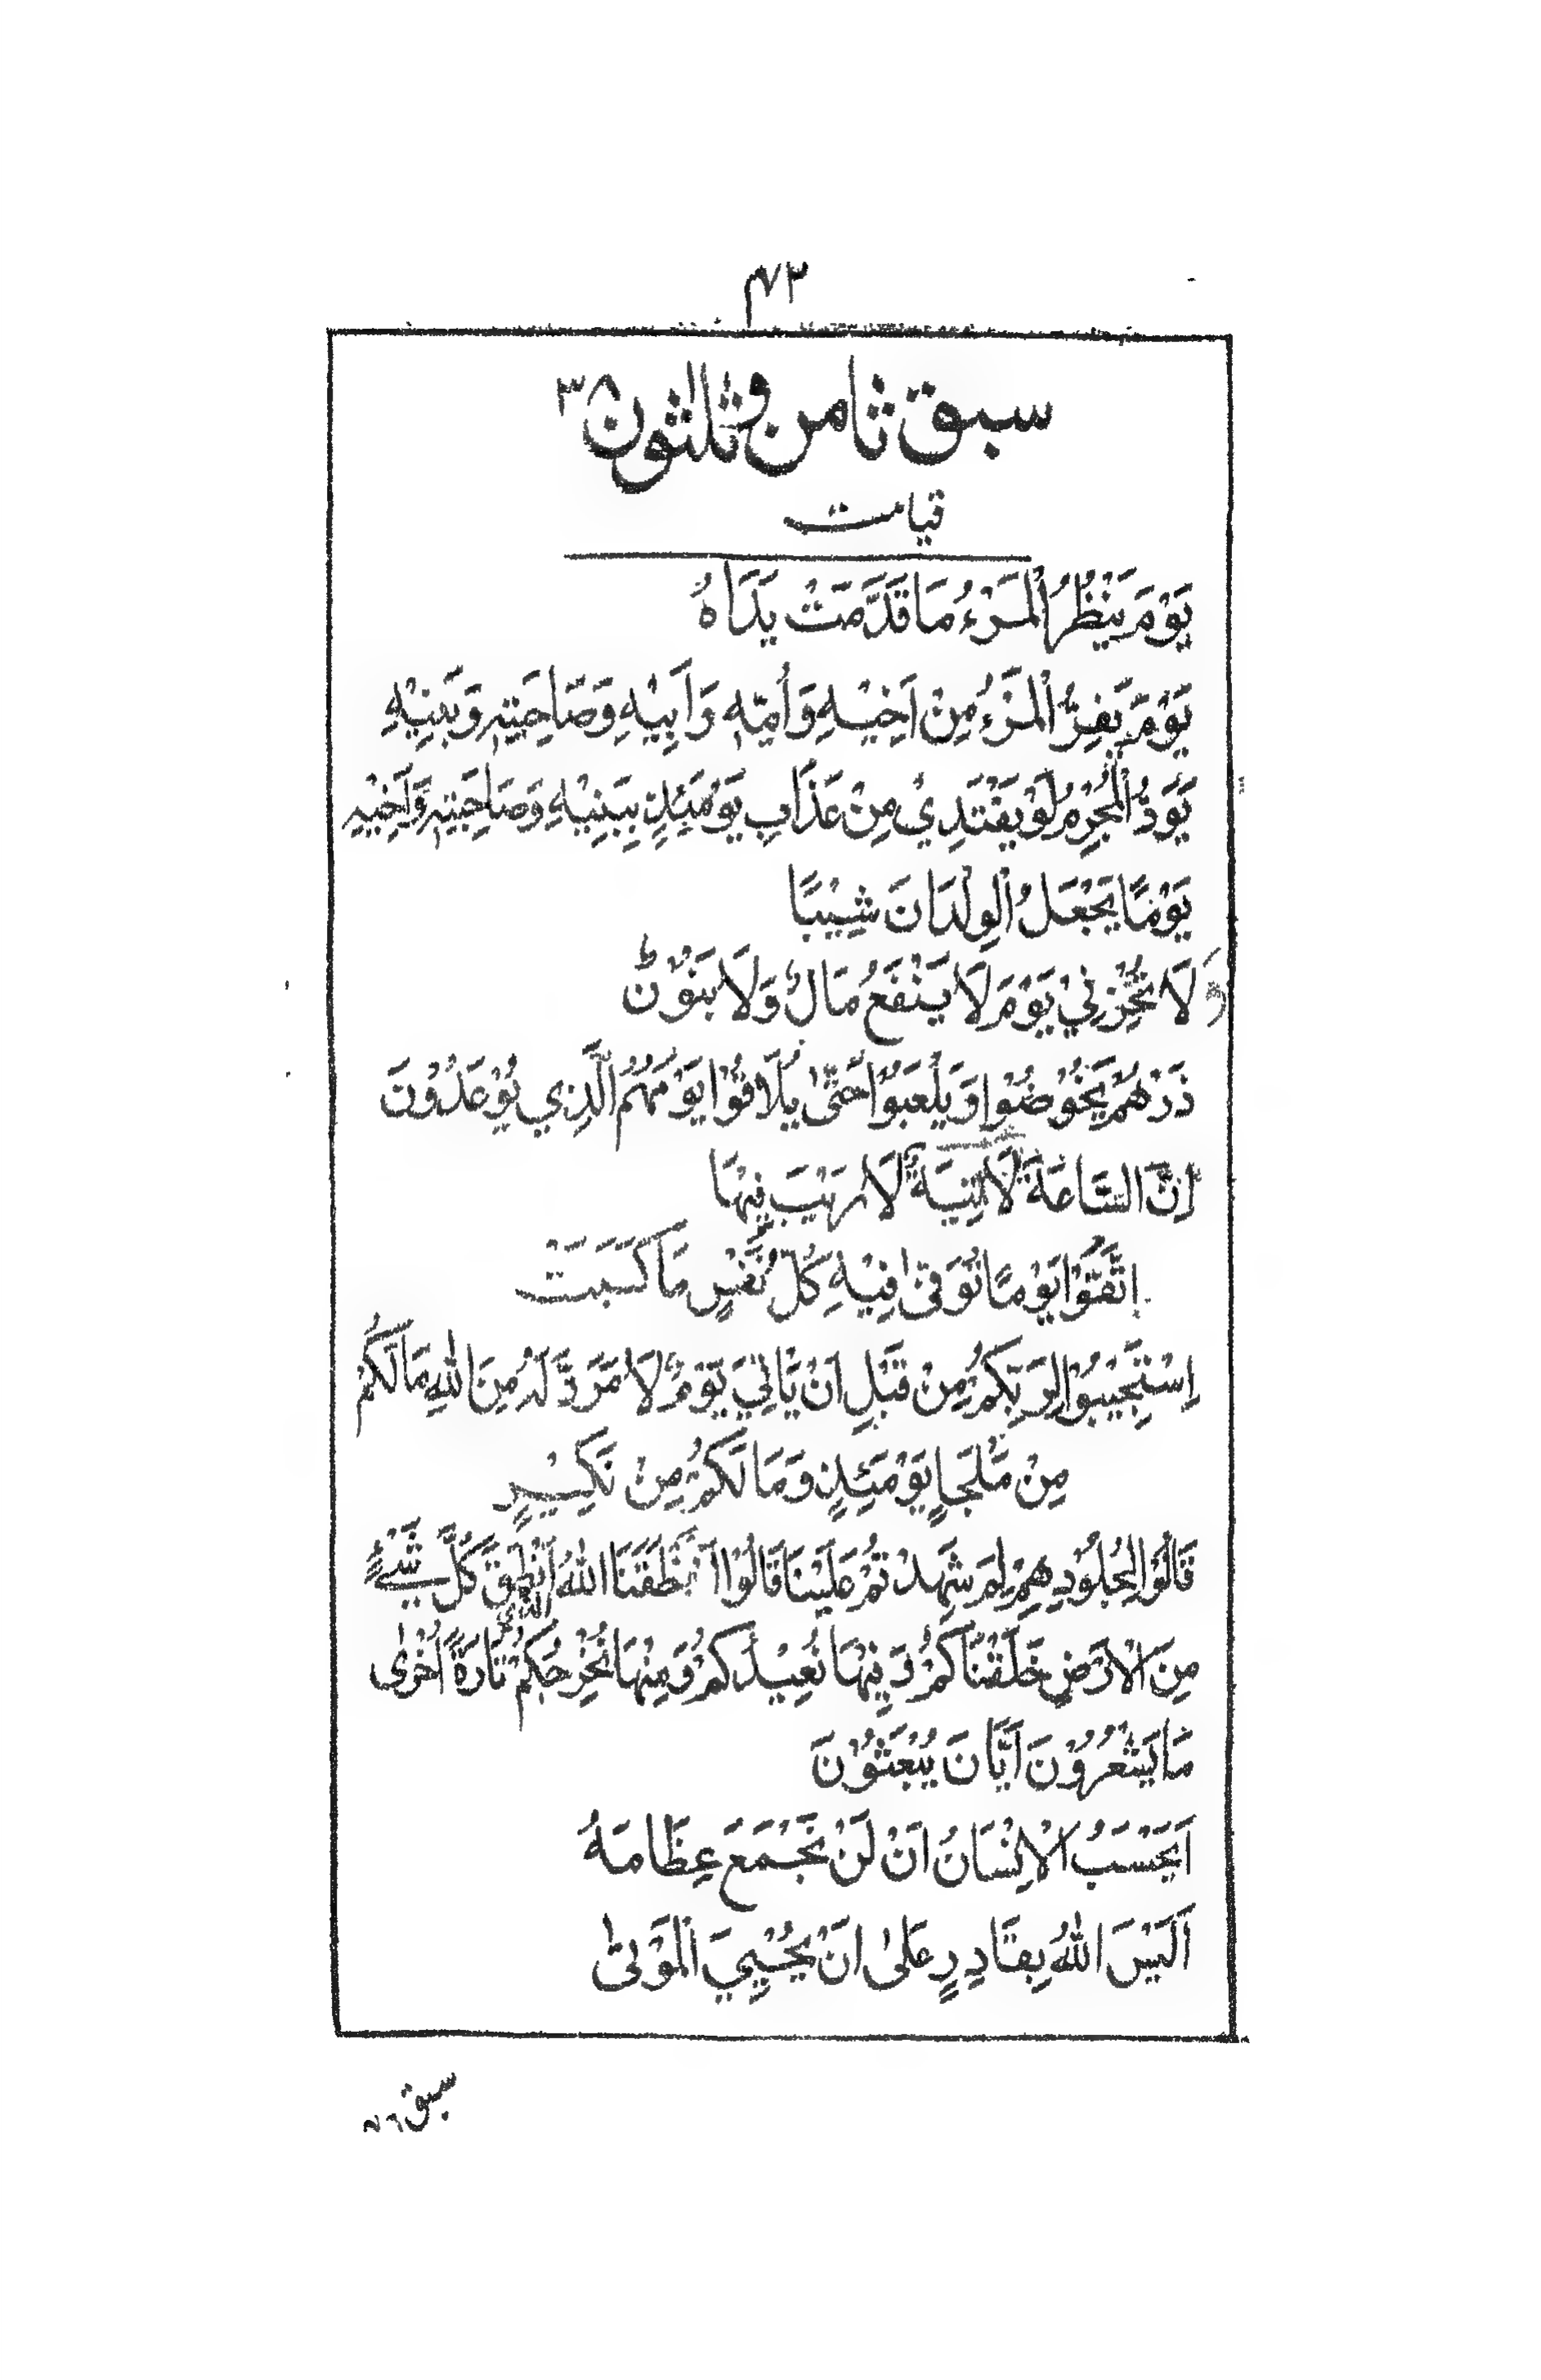 ۷۳
سبق ثامن و ثلثون ۳۸
قیامت
يَوْمَ يَنْظُرُ الْمَرْءُ مَا قَدَّمَتْ يَدَاهُ
يَوْمَ يَفِرُّ الْمَرْءُ مِنْ اَخِيْهِ وَاُمِّهٖ وَاَبِيْهِ وَصَاحِبَتِهٖ وَبَنِيْهِ
يَوَدُّ الْمُجْرِمُ لَوْ يَفْتَدِيْ مِنْ عَذَابِ يَوْمَئِذٍ بِبَنِيْهِ وَصَاحِبَتِهٖ وَاَخِيْهِ
يَوْمًا يَجْعَلُ الْوِلْدَانَ شِيْبًا
وَ لَا تُخْزِنِيْ يَوْمَ لَا يَنْفَعُ مَالٌ وَلَا بَنُوْنَ ط
ذَرْهُمْ يَخُوْضُوْا وَيَلْعَبُوْا حَتّٰى يُلَاقُوْا يَوْمَهُمُ الَّذِي يُوْعَدُوْنَ
اِنَّ السَّاعَةَ لَاٰتِيَةٌ لَا رَيْبَ فِيْهَا
اِتَّقُوْا يَوْمًا تُوَفّٰى فِيْهِ كُلُّ نَفْسٍ مَا كَسَبَتْ
اِسْتَجِيْبُوْا لِرَبِّكُمْ مِنْ قَبْلِ اَنْ يَّاْتِيَ يَوْمٌ لَا مَرَدَّ لَهُ مِنَ اللهِ مَا لَكُمْ
مِنْ مَّلْجَاٍ يَوْمَئِذٍ وَمَا لَكُمْ مِنْ نَكِيْرٍ
قَالُوْا لِجُلُوْدِهِمْ لِمَ شَهِدْتُمْ عَلَيْنَا قَالُوْا اَنْطَقَنَا اللهُ الَّذِي اَنْطَقَ كُلَّ شَيْءٍ
مِنَ الْاَرْضِ خَلَقْنَاكُمْ وَفِيْهَا نُعِيْدُكُمْ وَمِنْهَا نُخْرِجُكُمْ تَارَةً اُخْرٰى
مَا يَشْعُرُوْنَ اَيَّانَ يُبْعَثُوْنَ
اَيَحْسَبُ الْاِنْسَانُ اَنْ لَنْ نَجْمَعَ عِظَامَهُ
اَلَيْسَ اللهُ بِقَادِرٍ عَلٰى اَنْ يُحْيِيَ الْمَوْتٰى
سبق